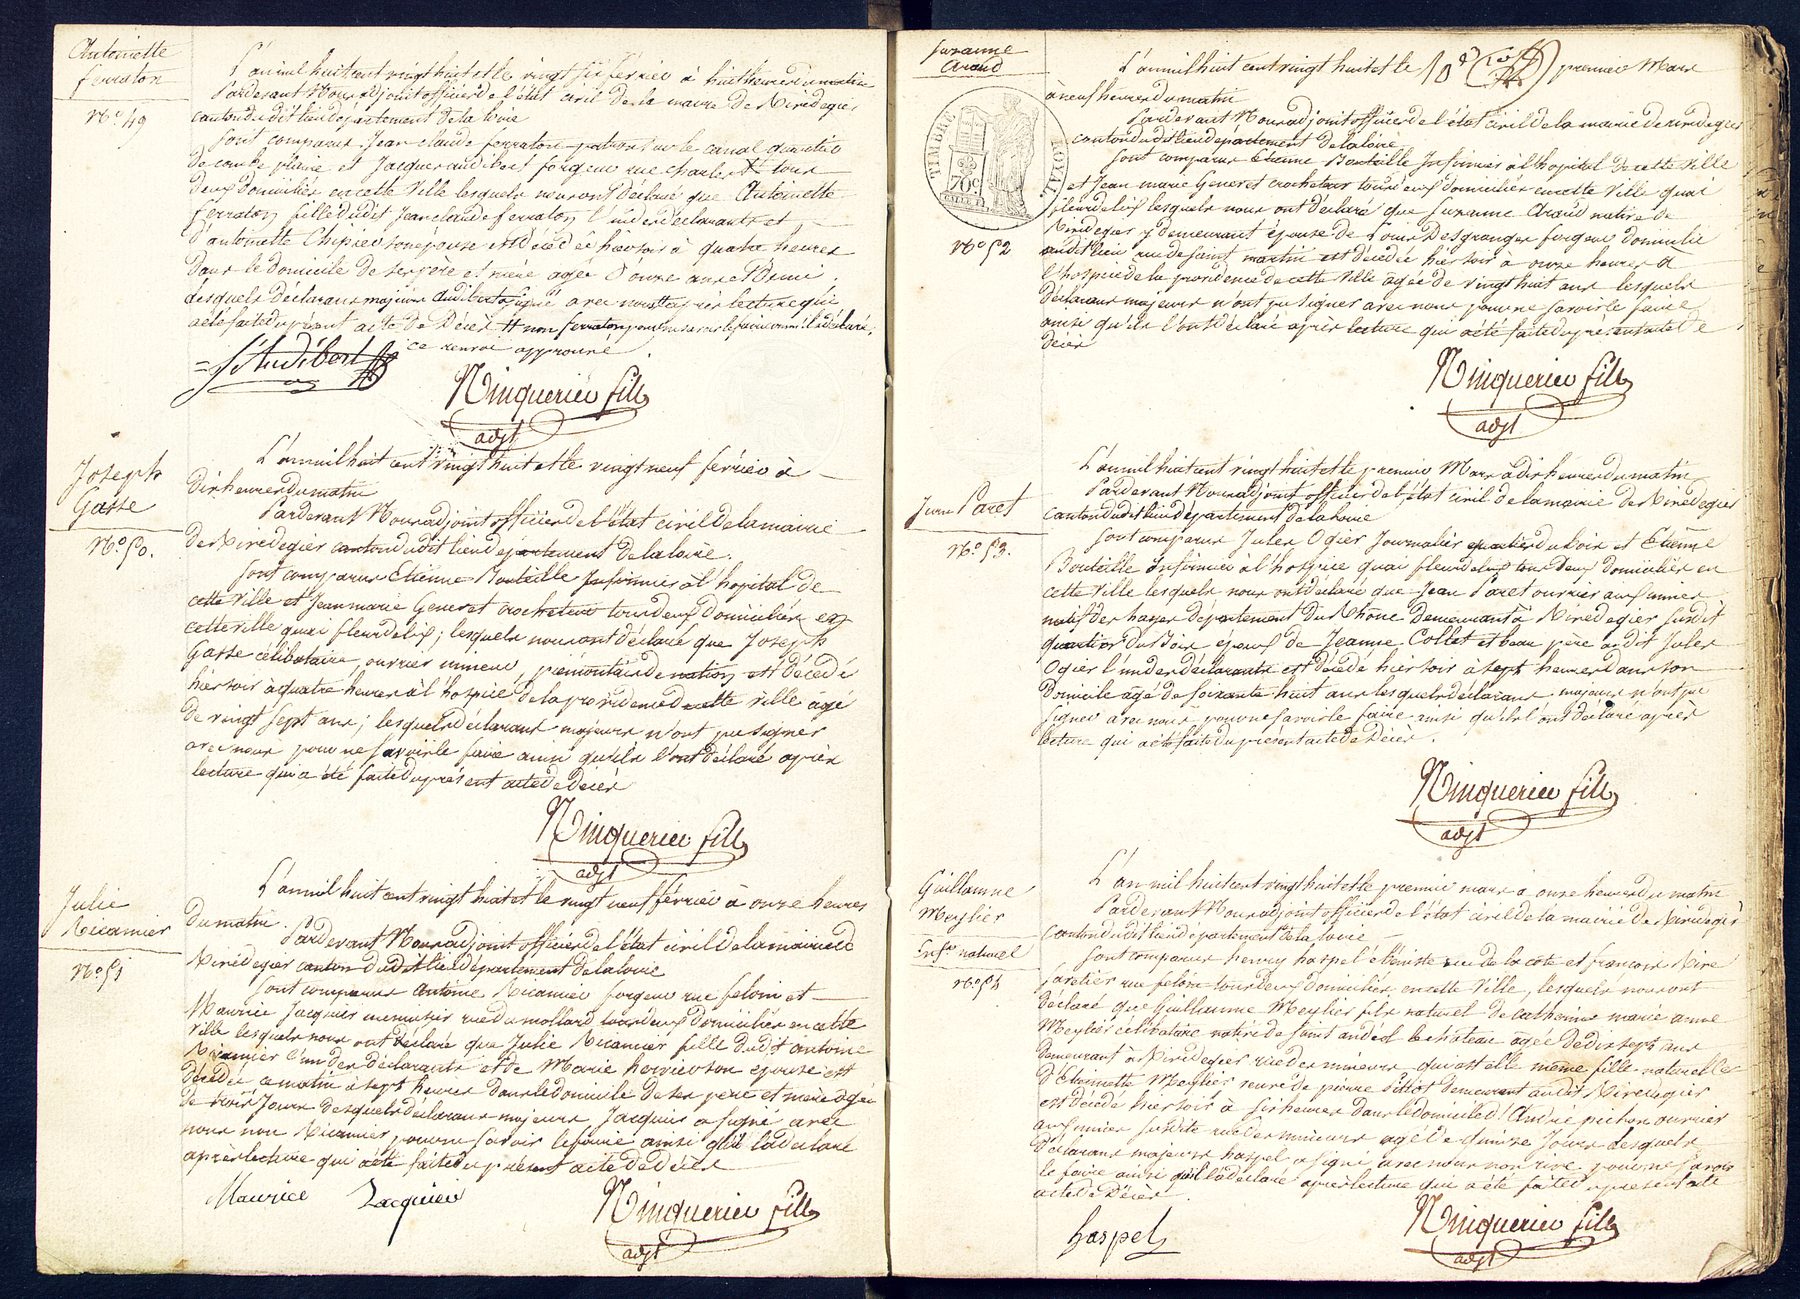 Antoinette
ferraton
No. 49
L'an mil huit cent vingt huit et le vingt six février à huit heures du matin
Pardevant Nous adjoint officier de l'état civil de la mairie de Rivedegier
canton dudit lieu département de la loire
sont comparus Jean claude ferraton patron sur le canal quartier
de combe plaine et Jacques audibert forgeur rue charles X tous
deux domiciliés en cette ville lesquels nous ont déclaré que Antoinette
ferraton fille dudit Jean claude ferraton l'un des déclarants et
d'antoinette Chipier son épouse est décédée hier soir à quatre heures
dans le domicile de ses père et mère agée d'onze ans et demi
desquels déclarans majeurs audibert a signé avec nous # après lecture qui
a été faite du présent acte de décès # non ferraton pour ne savoir le faire comme il a déclaré,
ce renvoi approuvé
J Audibert
Ninquerier fils
adjt
Joseph
Gasse
No. 50.
L'an mil huit cent vingt huit et le vingt neuf février à
dix heures du matin
Pardevant Nous adjoint officier de l'état civil de la mairie
de Rivedegier canton dudit lieu département de la loire.
sont comparus Etienne Bouteille Infirmier à l'hopital de
cette ville et Jean marie Generet crocheteur tous deux domiciliés en
cette ville quai fleurdelix; lesquels nous ont déclaré que Joseph
Gasse célibataire, ouvrier mineur, piémontais de nation est décédé
hier soir à quatre heures à l'hospice de la providence de cette ville âgé
de vingt sept ans; lesquels déclarans majeurs n'ont pu signer
avec nous pour ne savoir le faire ainsi qu'ils l'ont déclaré après
lecture qui a été faite du présent acte de décès
Ninquerier fils
adjt
Julie
Ricamier
No. 51
L'an mil huit cent vingt huit et le vingt neuf février à onze heures
du matin.
Pardevant Nous adjoint officier de l'état civil de la mairie de
Rivedegier canton dudit lieu département de la loire
sont comparus Antoine Ricamier forgeur rue feloin et
Maurice Jacquier menuisier rue du mollard tous deux domiciliés en cette
ville lesquels nous ont déclaré que Julie Ricamier fille dudit antoine
Ricamier l'un des déclarants et de Marie son épouse est
décédée ce matin à sept heures dans le domicile de ses père et mère agée
de trois Jours desquels déclarans majeurs Jacquier a signé avec
nous non Ricamier pour ne savoir le faire ainsi qu'il l'a déclaré
après lecture qui a été faite du présent acte de décès
Maurice Jacquier
Ninquerier fils
adjt
Suzanne
Araud
TIMBRE ROYAL
70c
No. 52
L'an mil huit cent vingt huit et le premier Mars
à neuf heures du matin
Pardevant Nous adjoint officier de l'état civil de la mairie de rivedegier
canton dudit lieu département de la loire
sont comparus Etienne Bouteille Infirmier à l'hopital de cette ville
et Jean marie Generet crocheteur tous deux domiciliés en cette ville quai
fleurdelix lesquels nous ont déclaré que Suzanne Araud native de
Rivedegier y demeurant épouse de Louis Desgranges forgeur domicilié
audit lieu rue de saint martin est décédée hier soir à onze heures à
l'hospice de la providence de cette ville agée de vingt huit ans lesquels
déclarans majeurs n'ont pu signer avec nous pour ne savoir le faire
ainsi qu'ils l'ont déclaré après lecture qui a été faite du présent acte de
décès
Ninquerier fils
adjt
Jean Paret
No. 53.
L'an mil huit cent vingt huit et le premier Mars à dix heures du matin
Pardevant Nous adjoint officier de l'état civil de la mairie de Rivedegier
canton dudit lieu département de la loire
sont comparus Jules Ogier Journalier quartier du bois et Etienne
Bouteille Infirmier à l'hospice quai fleurdelix tous deux domiciliés en
cette ville lesquels nous ont déclaré que Jean Paret ouvrier aux mines
natif des hayes département du Rhône demeurant à Rivedegier susdit
quartier du Bois époux de Jeanne Collet et beau père audit Jules
Ogier l'un des déclarants est décédé hier soir à sept heures dans son
domicile agé de soixante huit ans lesquels déclarans majeurs n'ont pu
signer avec nous pour ne savoir le faire ainsi qu'ils l'ont déclaré après
lecture qui a été faite du présent acte de Décès.
Ninquerier fils
adjt
Guillaume
Meylier
Enft naturel
No. 54
L'an mil huit cent vingt huit et le premier mars à onze heures du matin
Pardevant Nous adjoint officier de l'état civil de la mairie de Rivedegier
canton dudit lieu département de la loire
sont comparus henry haspel ébéniste rue de la cote et francois Rive
rue feloin tous deux domiciliés en cette ville, lesquels nous ont
déclaré que Guillaume Meylier fils naturel de catherine marie anne
Meylier célibataire native de saint andéol le chateau agée de dix sept ans
demeurant à Rivedegier rue des mineurs, quiest elle même fille naturelle
d'Etiennette Meylier veuve de pierre demeurant audit Rivedegier
est décédé hier soir à six heures dans le domicile d'André pichon ouvrier
aux mines susdite rue des mineurs agé de quinze Jours desquels
déclarans majeurs haspel a signé avec nous non rive pour ne savoir
le faire ainsi qu'il l'a déclaré après lecture qui a été faite du présent
acte de Décès
haspel
Ninquerier fils
adjt